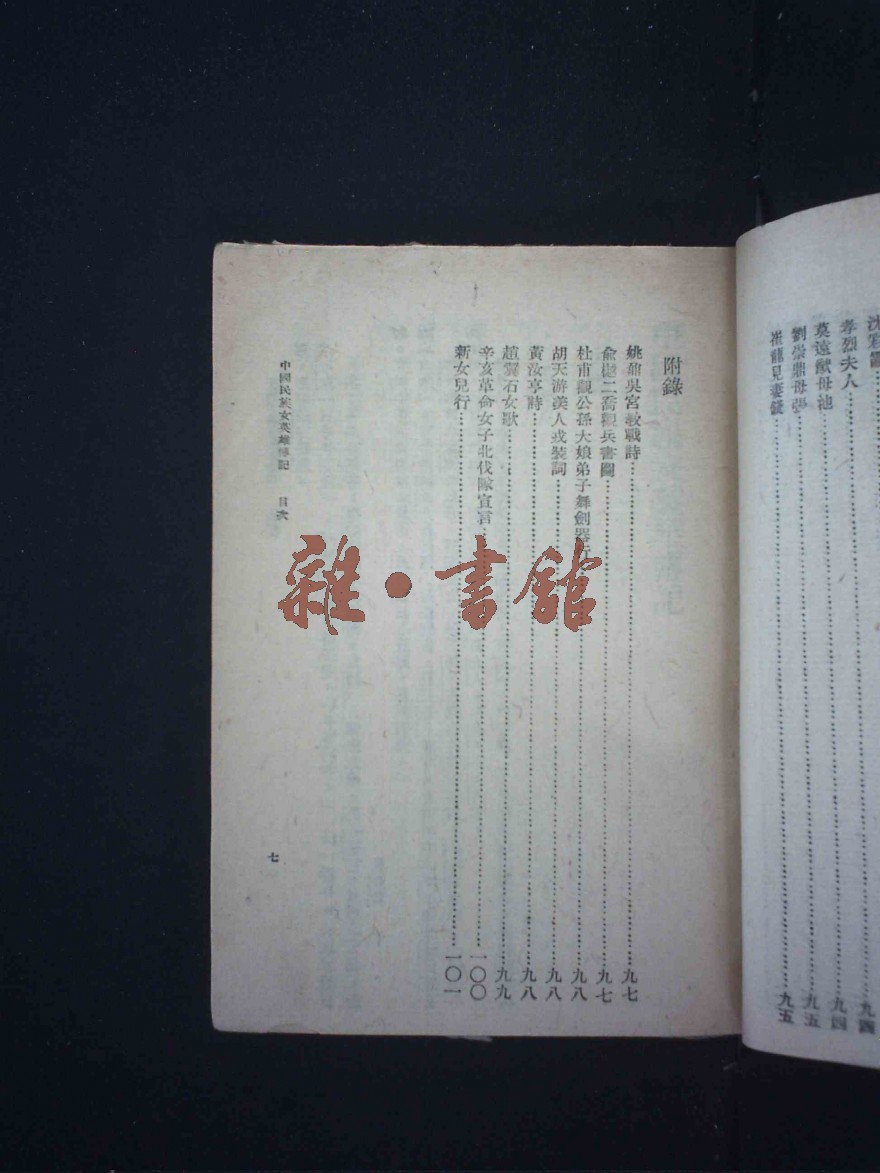 孝烈夫人……九四
莫遠猷母池……九四
劉崇鼎母張……九五
崔龍見妻錢……九五
附錄
姚鼐吳宮教戰詩……九七
俞樾二喬觀兵書圖……九七
杜甫觀公孫大娘弟子舞劍器行……九八
胡天游美人戎裝詞……九八
黃汝亭詩……九八
趙翼石女歌……九九
辛亥革命女子北伐隊宣言……一〇〇
新女兒行……一〇一
中國民族女英雄傳記 目次
七
雜·書館